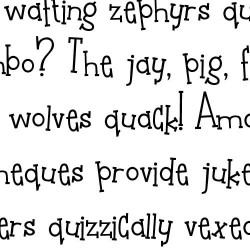 wafting zephyrs qu
nbo? The jay, pig, f
wolves quack! Amo
neques provide juke
ers quizzically vexed